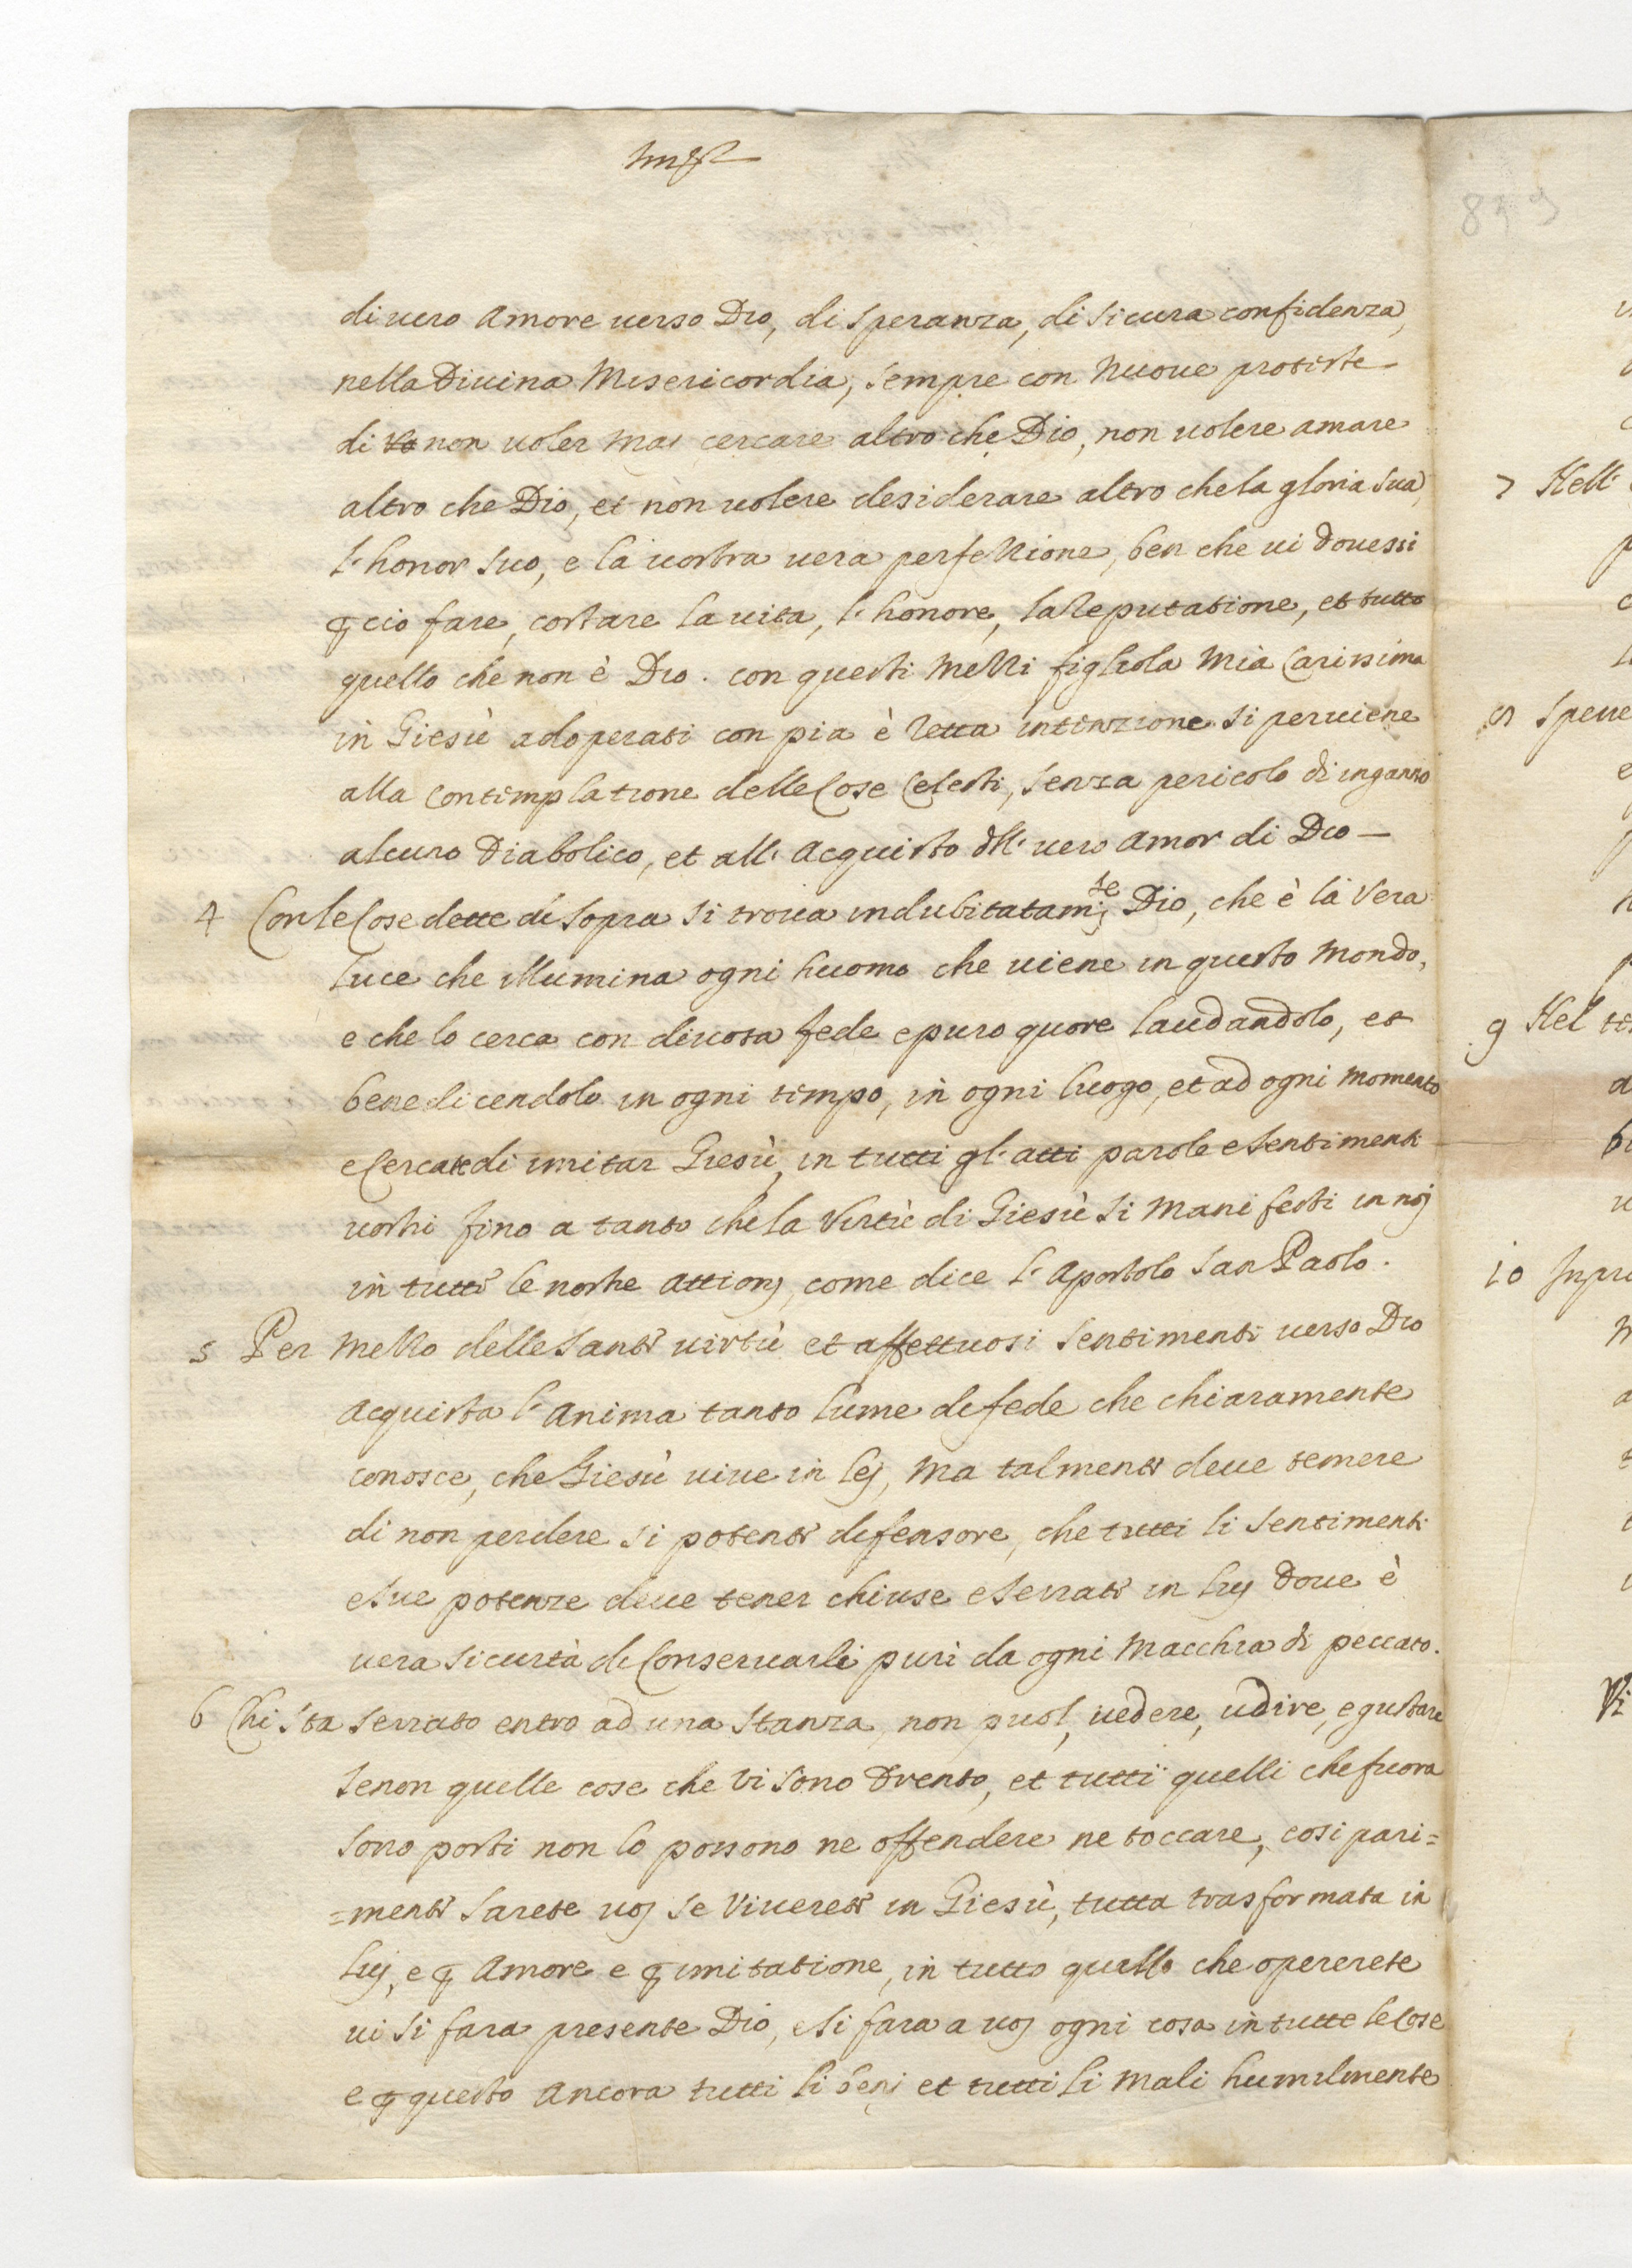 di uero Amore uerso Dio, di speranza, di sicura confidenza,
nella Diuina Misericordia, sempre con Nuoue protiste
di non uoler mai cercare altro che Dio, non uolere amare
altro che Dio, et non uolere desiderare altro che la gloria sua,
l'honor suo, e la uostra uera perfettione, ben che ui douessi
ꝑ cio fare, costare la uita, l'honore, la Reputatione, et tutto
quello che non è Dio. con questi Mezzi figliola Mia Carissima
in Giesù adoperati con pia è retta intenzione si peruiene
alla Contimplatione delle Cose Celesti, senza pericolo di inganno
alcuno Diabolico, et all' Acquisto dll' uero Amor di Dio —
4 Con le Cose dette di sopra si troua indubitatam:te Dio, che è la Vera
luce che illumina ogni huomo che uiene in questo Mondo,
e che lo cerca con diuota fede e puro quore laudandolo, et
benedicendolo in ogni tempo, in ogni luogo, et ad ogni Momento
e Cercate di imitar Giesù, in tutti gl' atti parole e sentimenti
uostri fino a tanto che la Virtù di Giesù si Manifesti in noj
in tutte le nostre Attionj, come dice l'Apostolo San Paolo.
5 Per Mezzo delle Sante uirtù et affettuosi sentimenti uerso Dio
Acquista l'Anima tanto lume di fede che chiaramente
conosce, che Giesù uiue in lej, Ma talmente deue temere
di non perdere si potente difensore, che tutti li sentimenti
e sue potenze deue tener chiuse e serrate in luj doue è
uera sicurtà di Conseruarli puri da ogni Macchia di peccato.
6 Chi sta serrato entro ad una stanza, non puol, uedere, udire, e gustare
se non quelle cose che Vi sono drento, et tutti quelli che fuora
sono posti non lo possono ne offendere ne toccare, cosi pari=
=mente sarete uoj se Viuerete in Giesù, tutta trasformata in
luj, e ꝑ Amore e ꝑ imitatione, in tutto quello che opererete
ui si fara presente Dio, e si fara a uoj ogni cosa in tutte le Cose
e ꝑ questo Ancora tutti li beni et tutti li Mali humilmente
849
7 Nell'
8
9 Nel
10